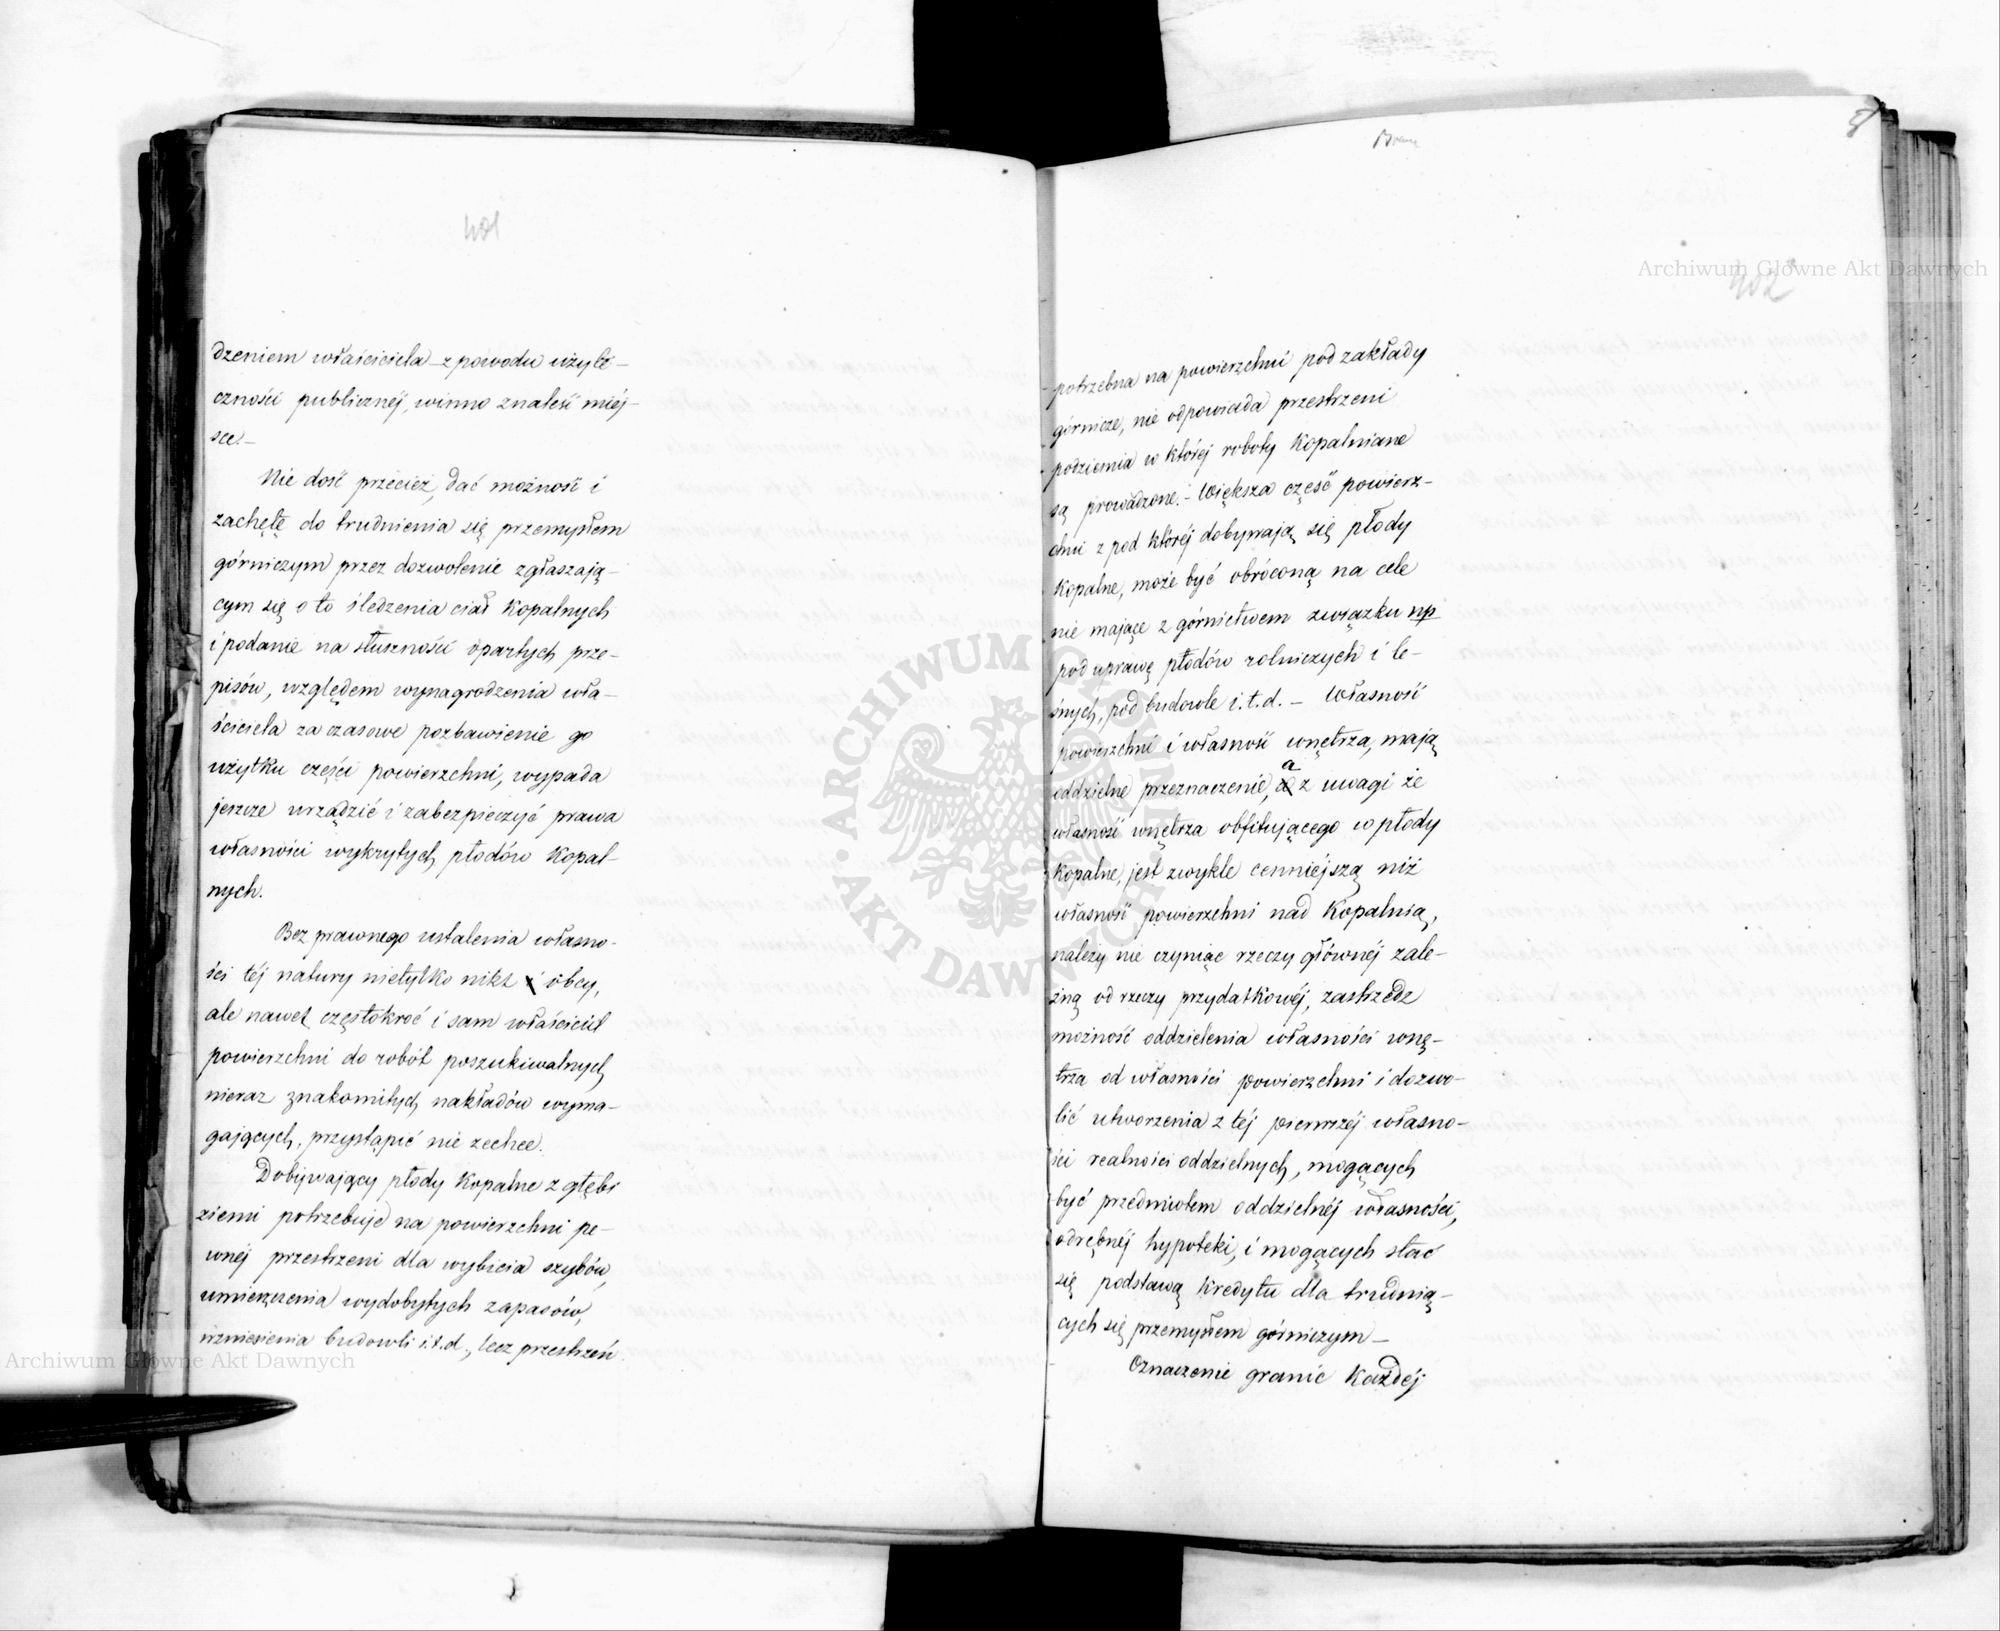 401
dzeniem właściciela z powodu użyte-
czności publicznéj, winno znaleść miéj-
sce.-
Nie dość przecież, dać możność i
zachętę do trudnienia się przemysłem
górniczym przez dozwolenie zgłaszają-
cym się o to śledzenia ciał kopalnych
i podanie na słuszności opartych prze-
pisów, względem wynagrodzenia wła-
ściciela za czasowe pozbawienie go
użytku części powierzchni, wypada
jeszcze urządzić i zabezpieczyć prawa
własności wykrytych płodów kopal-
nych.
Bez prawnego ustalenia własno-
ści téj natury nietylko nikt obcy,
ale nawet częstokroć i sam właściciel
powierzchni do robót poszukiwalnych
nieraz znakomitych nakładów wyma-
gających, przystąpić nie zechce.
Dobywający płody kopalne z głębi
ziemi potrzebuje na powierzchni pe-
wnéj przestrzeni dla wybicia szybów,
umieszczenia wydobytych zapasów,
wzniesienia budowli i.t.d., lecz przestrzeń
8
402
potrzebna na powierzchni pod zakłady
górnicze, nie odpowiada przestrzeni
podziemia w któréj roboty kopalniane
są prowadzone.- Większa część powierz-
chni z pod któréj dobywają się płody
kopalne, może być obróconą na cele
nie mające z górnictwem związku np
pod uprawę płodów rolniczych i le-
śnych, pod budowle i.t.d. - Własność
powierzchni i własność wnętrza, mają
oddzielne przeznaczenie, a z uwagi że
własność wnętrza obfitującego w płody
kopalne, jest zwykle cenniéjszą niż
własność powierzchni nad kopalnią,
należy nie czyniąc rzeczy głównéj zale-
żną od rzeczy przydatkowéj, zastrzedz
możność oddzielenia własności wnę-
trza od własności powierzchni i dozwo-
lić utworzenia z téj pierwszéj własno-
ści realności oddzielnych, mogących
być przedmiotem oddzielnéj własności,
odrębnéj hypoteki, i mogących stać
się podstawą kredytu dla trudnią-
cych się przemysłem górniczym-
Oznaczenie granic każdéj
Archiwum Główne Akt Dawnych
Archiwum Główne Akt Dawnych
ARCHIWUM GŁÓWNE AKT DAWNYCH